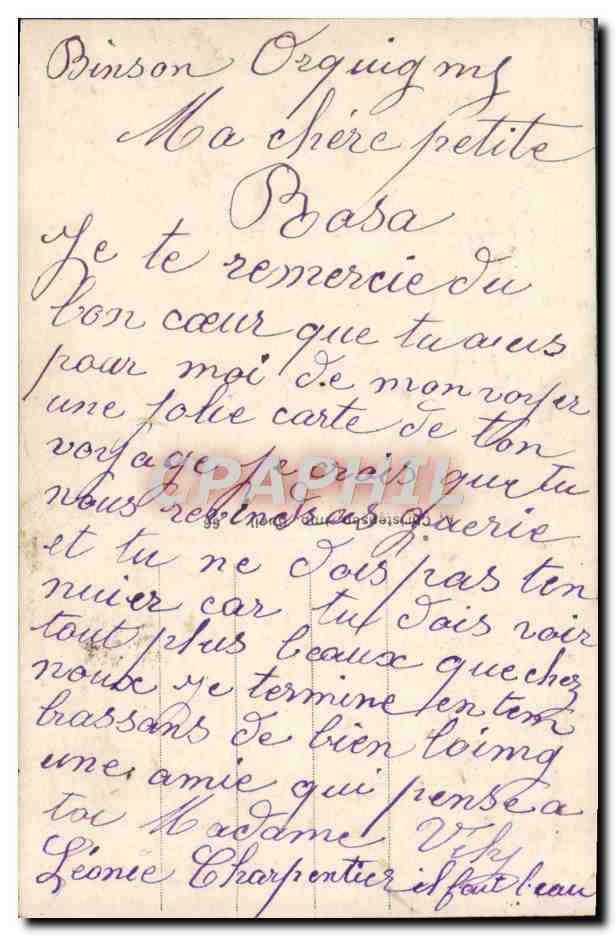 Binson Orquigny
Ma chére petite
Rosa
Je te remercie du
bon cœur que tu aeus
pour moi de monvoyer
une jolie carte de ton
voyage je crois que tu
nous
et tu ne dois pas ten
nuier car tu dois voir
tout plus beaux que chez
noux je termine en tem
brassans de bien loimg
une amie qui pense a
toi Madame
Léonie Charpentier il fait beau
CPAPHIL